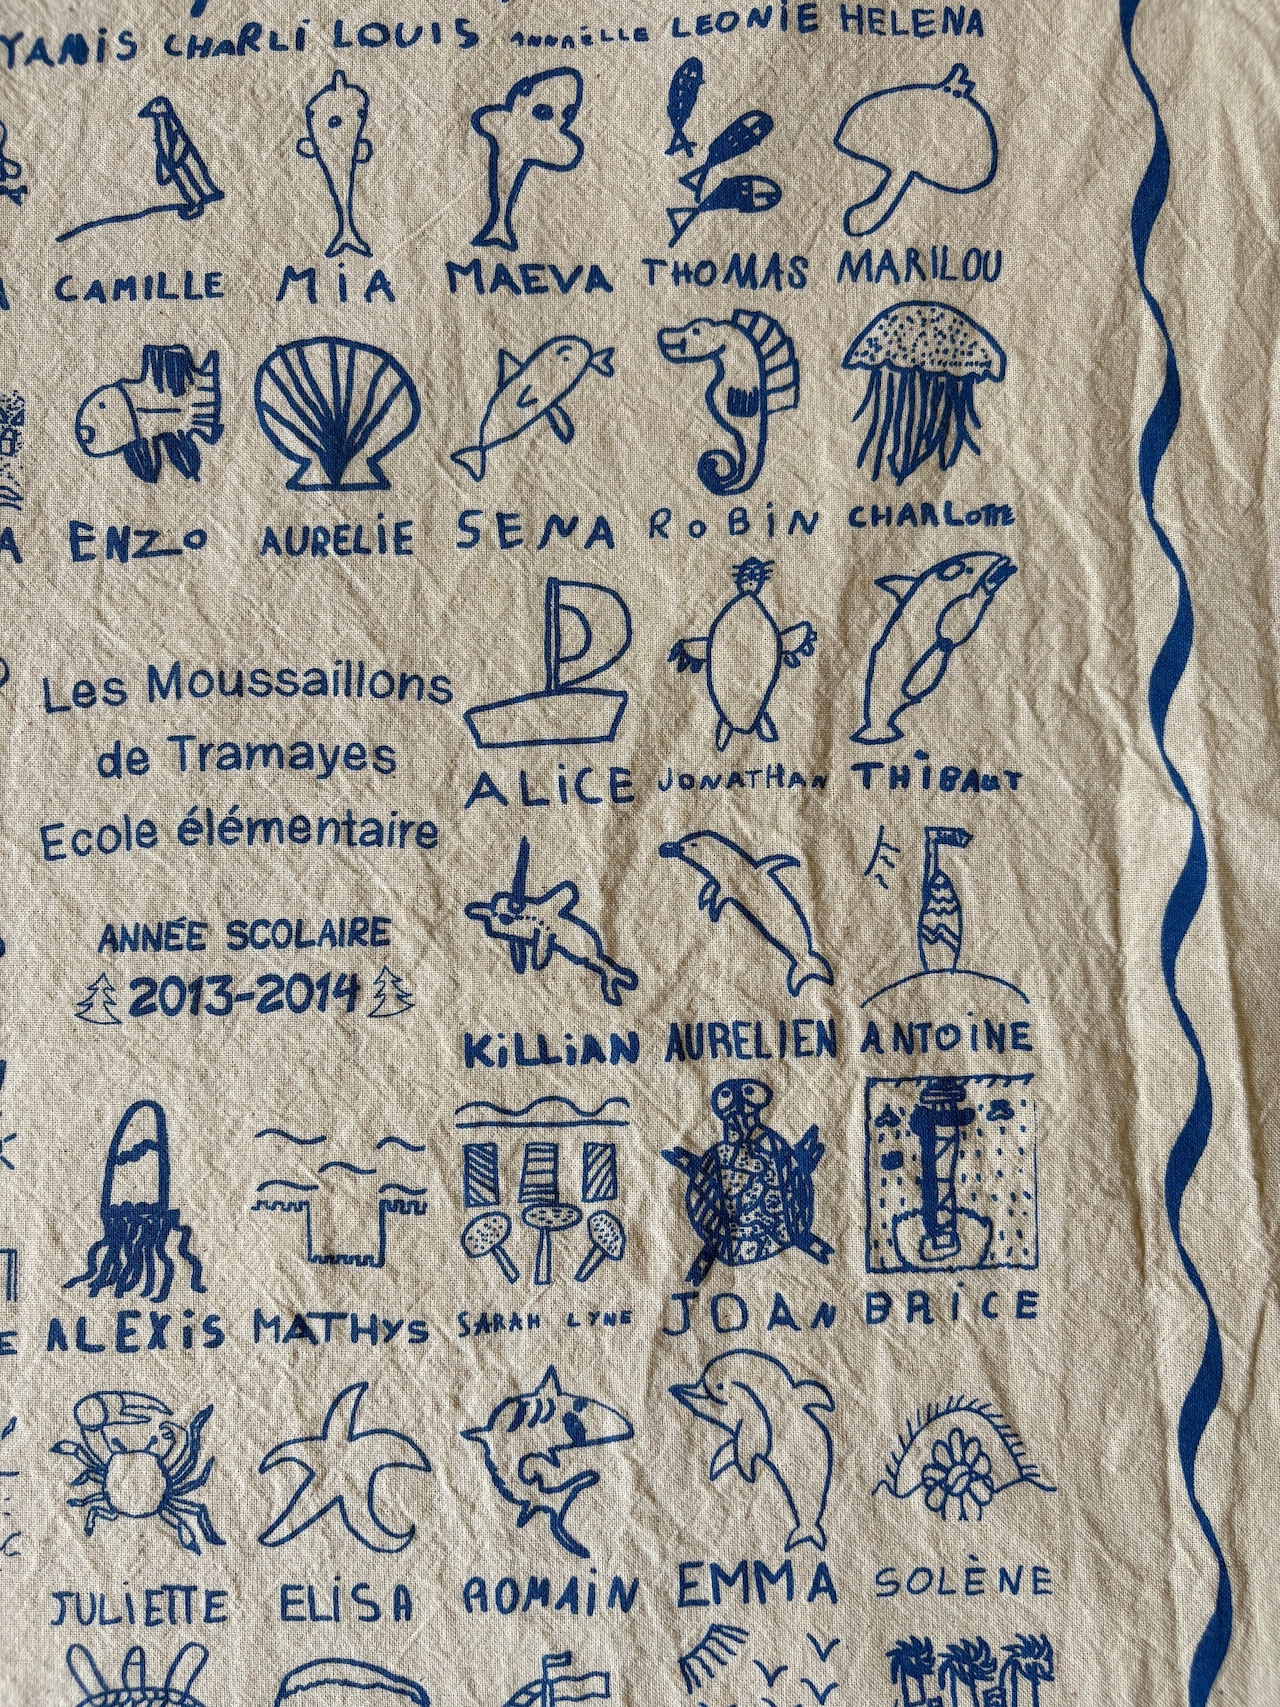 YANIS CHARLi LOUIS ANNAËLLE LEONIE HELENA
CAMILLE MiA MAEVA THOMAS MARILOU
ENZO AURELIE SENA ROBiN CHARLOTTE
Les Moussaillons
de Tramayes
Ecole élémentaire
ANNÉE SCOLAIRE
2013-2014
ALiCE JONATHAN THiBAUT
KiLLiAN AURELIEN ANTOiNE
ALEXiS MATHYS SARAH LYNE JOAN BRiCE
JULiETTE ELiSA ROMAiN EMMA SOLÈNE